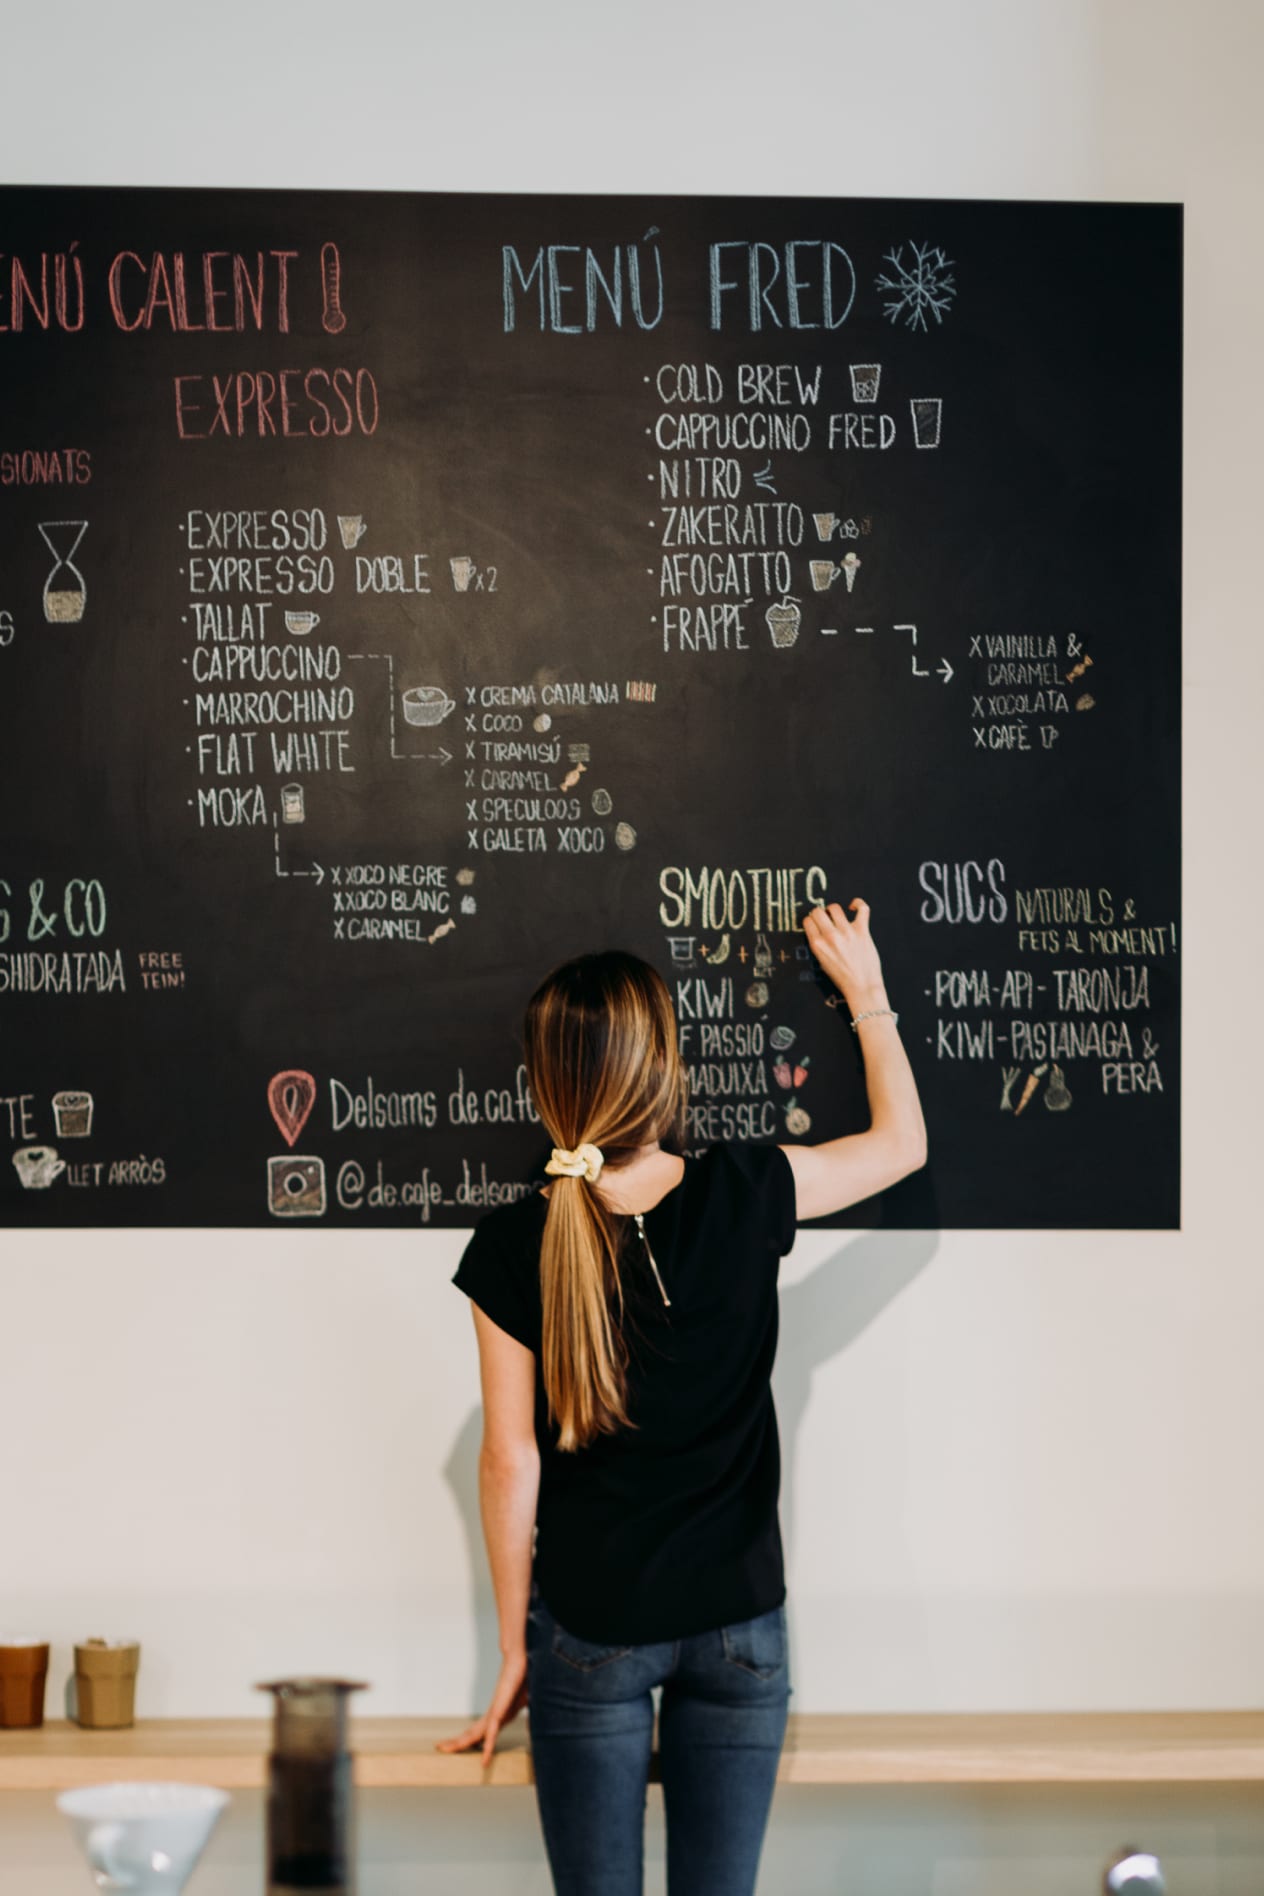 MENÚ CALENT
EXPRESSO
SIONATS
· EXPRESSO
· EXPRESSO DOBLE x2
· TALLAT
· CAPPUCCINO
· MARROCHINO
· FLAT WHITE
· MOKA
X CREMA CATALANA
X COCO
X TIRAMISÚ
X CARAMEL
X SPECULOOS
X GALETA XOCO
X XOCO NEGRE
X XOCO BLANC
X CARAMEL
& CO
SHIDRATADA FREE
TEIN!
TTE
LLET ARRÒS
Delsams de.cafe
@de.cafe_delsams
MENÚ FRED
· COLD BREW
· CAPPUCCINO FRED
· NITRO
· ZAKERATTO
· AFOGATTO
· FRAPPÉ
X VAINILLA &
CARAMEL
X XOCOLATA
X CAFÈ
SMOOTHIES
+ + +
KIWI
F. PASSIÓ
MADUIXA
PRÈSSEC
SUCS NATURALS &
FETS AL MOMENT!
· POMA-API-TARONJA
· KIWI-PASTANAGA &
PERA